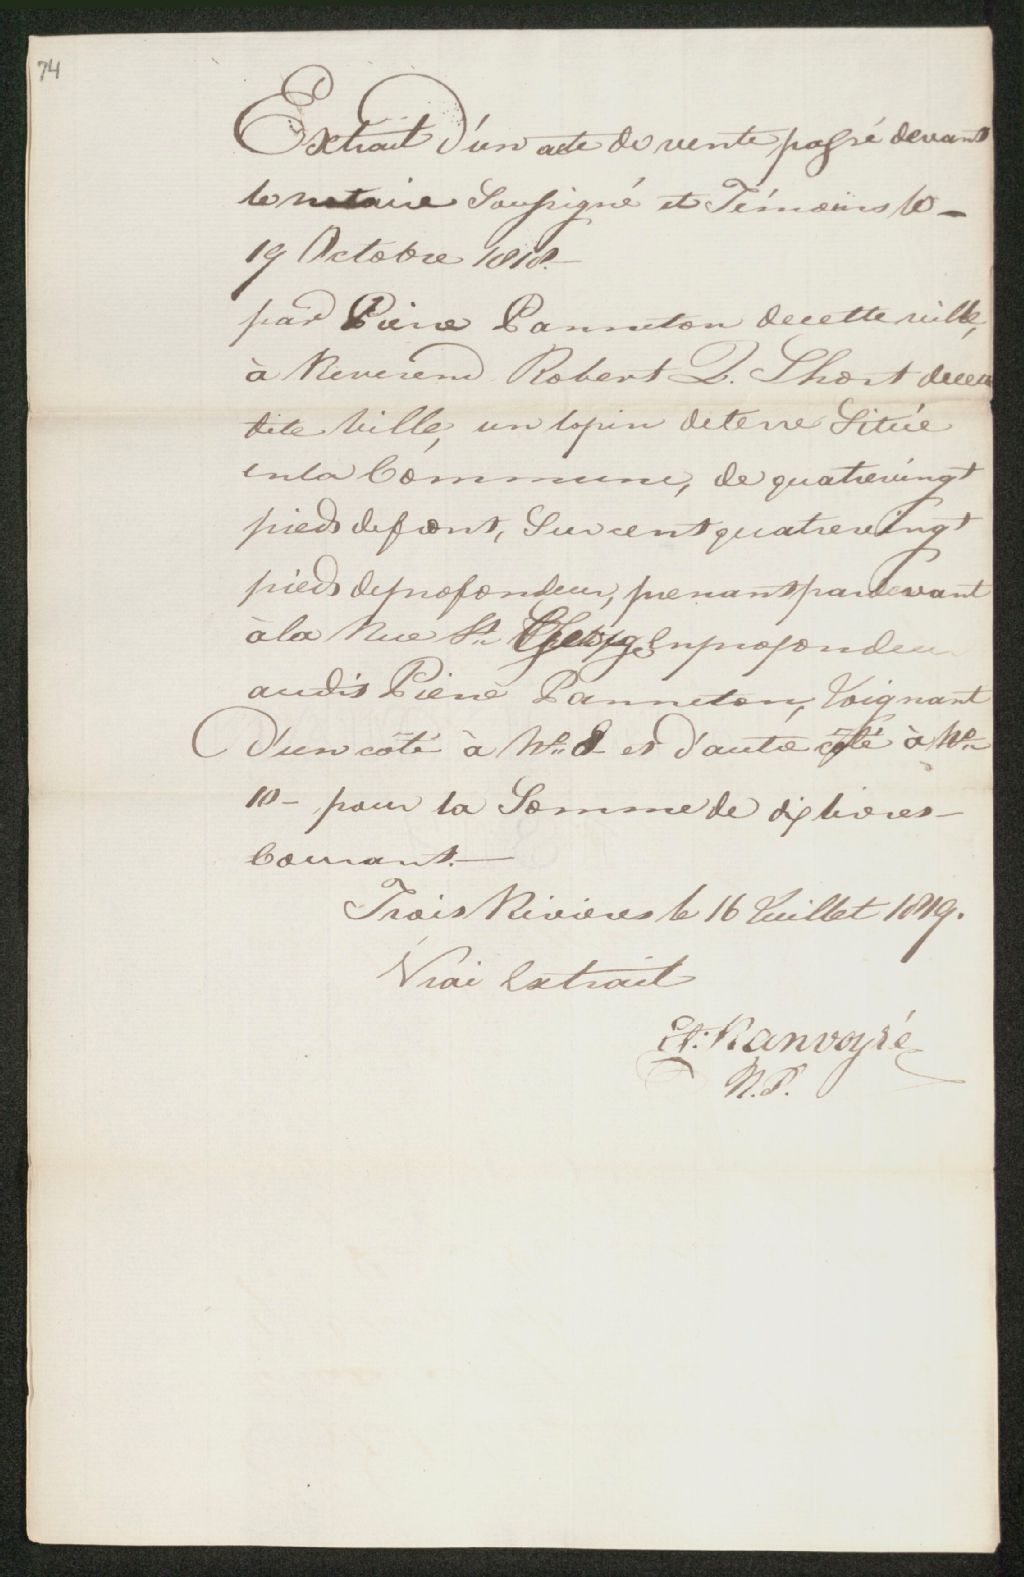 74
Extrait d'un acte de vente passé devant
le notaire Soussigné et Témoins le
19 Octobre 1818.
par Pierre Panneton de cette ville,
à Reverend Robert Q. Short de cette
dite ville, un lopin de terre Situé
en la Commune, de quatrevingt
pieds de front, Sur cent quatrevingt
pieds de profondeur, prenant par devant
à la Rue St. George, en profondeur
audit Pierre Panneton, Joignant
D'un côté à No. 8 et d'autre côté à No.
10 - pour la Somme de dix livres
Courant.
Trois Rivières le 16 Juillet 1819.
Vrai Extrait
Et. Ranvoyzé
N.P.